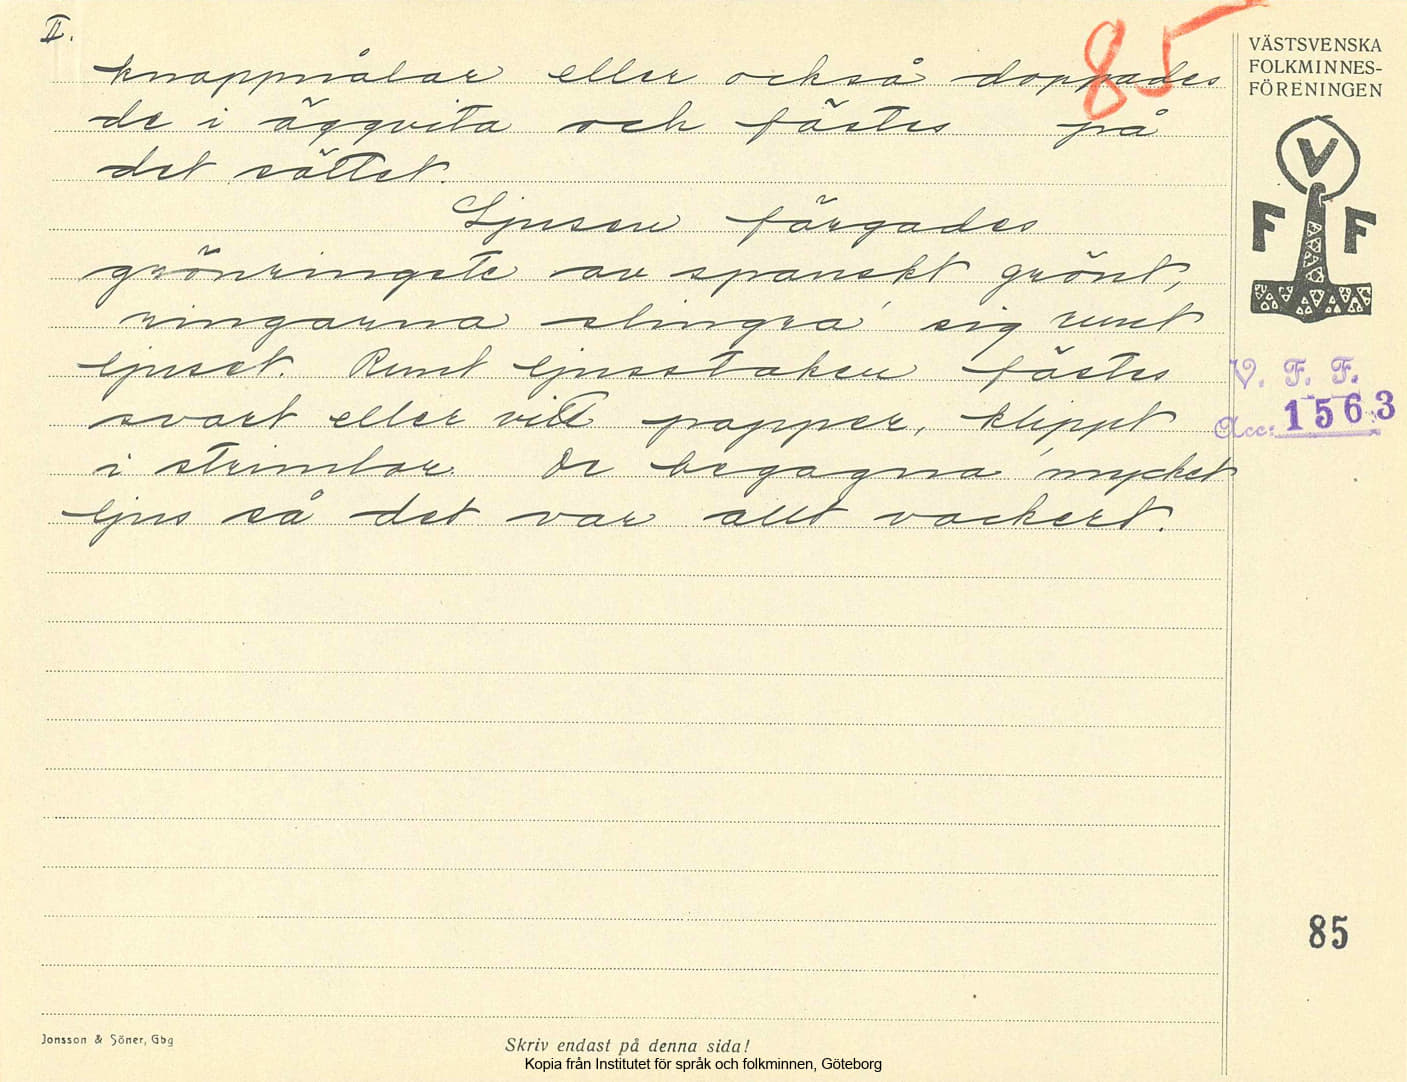 II.
85
knappnålar eller också doppades
de i äggvita och fästes på
det sättet.
Ljusen färgades
grönringste av spanskt grönt,
ringarna slingra' sig runt
ljuset. Runt ljusstaken fästes
svart eller vitt papper, klippt
i strimlor. De begagna' mycket
ljus så det var allt vackert.
VÄSTSVENSKA
FOLKMINNES-
FÖRENINGEN
V
F F
V. F. F.
Acc: 1563
85
Jonsson & Söner, Gbg
Skriv endast på denna sida!
Kopia från Institutet för språk och folkminnen, Göteborg